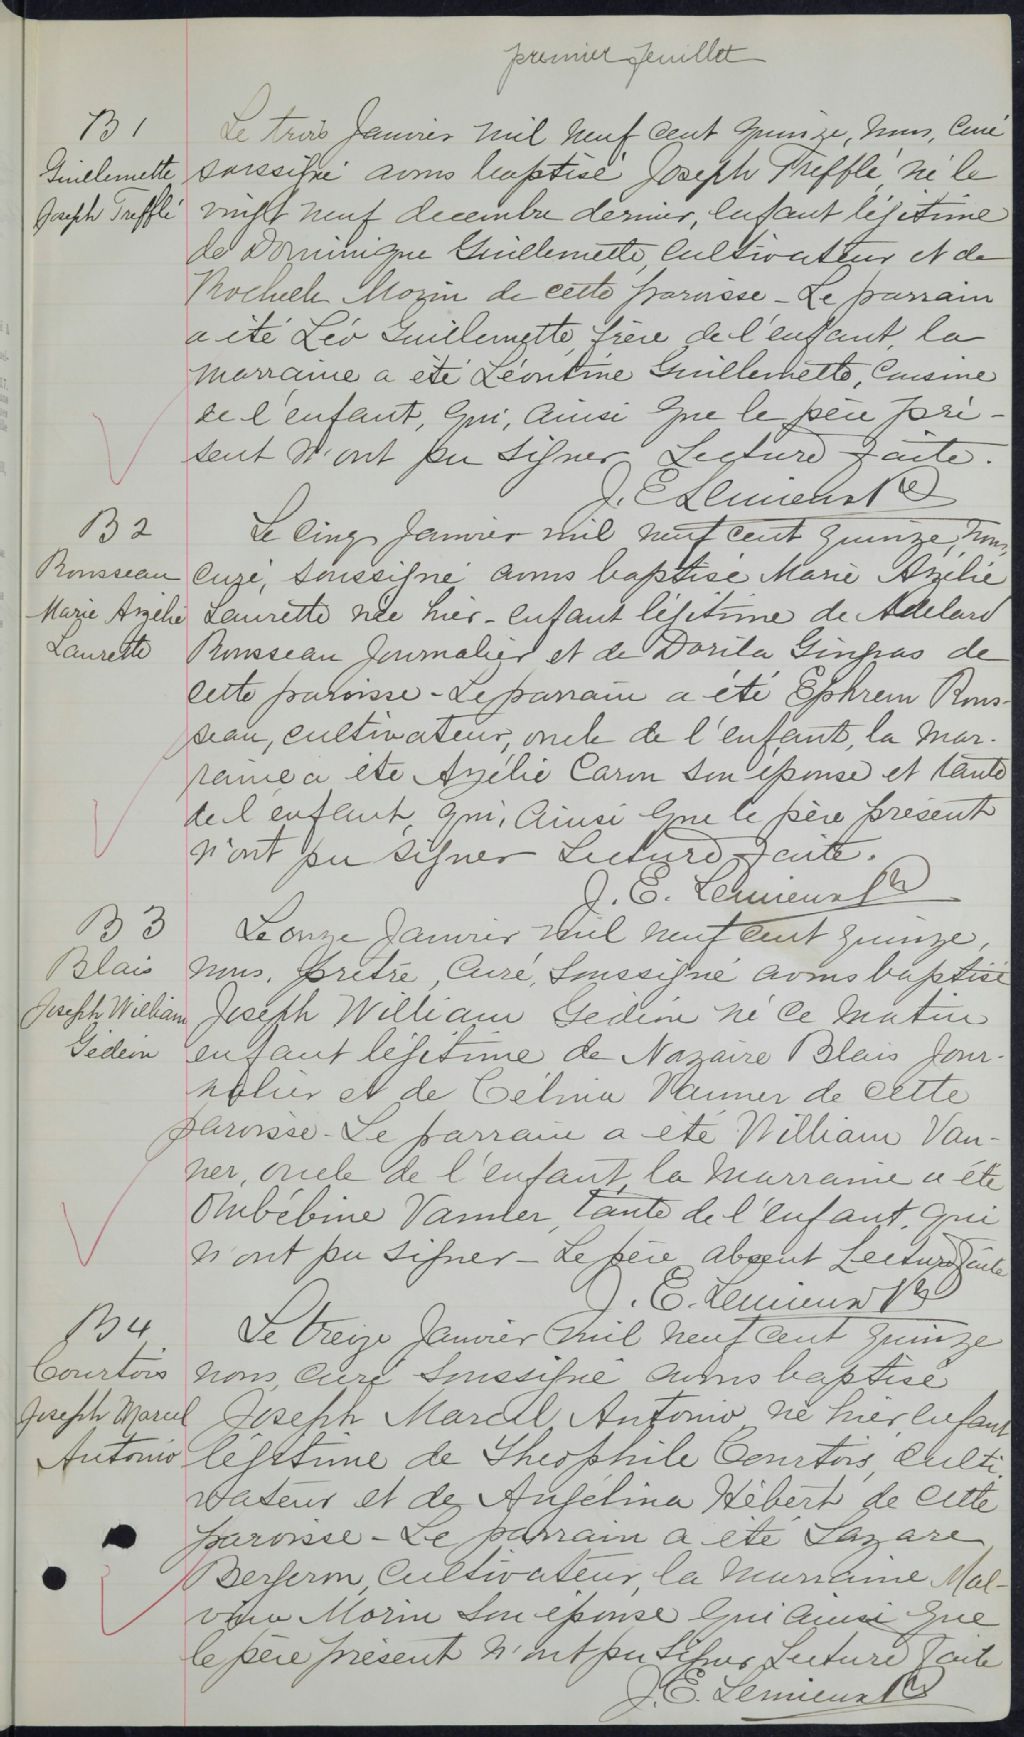 premier feuillet
B 1
Guillemette
Joseph Trefflé
Le trois Janvier mil neuf cent quinze, nous, curé
soussigné avons baptisé Joseph Trefflé, né le
vingt neuf decembre dernier, enfant légitime
de Dominique Guillemette, cultivateur et de
Rochelle Morin de cette paroisse - Le parrain
a été Léo Guillemette, frère de l'enfant, la
marraine a été Léontine Guillemette, cousine
de l'enfant, qui, ainsi que le père pré-
sent n'ont pu signer Lecture faite.
J. E Lemieux Ptre
B 2
Rousseau
Marie Azélie
Laurette
Le cinq Janvier mil neuf cent quinze, nous,
curé, soussigné avons baptisé Marie Azélie
Laurette née hier - enfant légitime de Adelard
Rousseau Journalier et de Dorila Gingras de
cette paroisse - Le parrain a été Ephrem Rous-
seau, cultivateur, oncle de l'enfant, la mar-
raine a été Azélie Caron son épouse et tante
de l'enfant, qui, ainsi que le père présent
n'ont pu signer Lecture faite.
J. E. Lemieux Ptr
B 3
Blais
Joseph William
Gédéon
Le onze Janvier mil neuf cent quinze,
nous, prêtre, curé, soussigné avons baptisé
Joseph William Gédéon né ce matin
enfant légitime de Nazaire Blais Jour-
nalier et de Célina Vanner de cette
paroisse - Le parrain a été William Van-
ner, oncle de l'enfant, la marraine a été
Ombéline Vanner, tante de l'enfant, qui
n'ont pu signer - Le père absent Lecture faite
J. E. Lemieux Ptr
B 4
Courtois
Joseph Marcel
Antonio
Le treize Janvier mil neuf cent quinze
nous, curé soussigné avons baptisé
Joseph Marcel Antonio né hier, enfant
légitime de Theophile Courtois, culti-
vateur et de Angélina Hébert de cette
paroisse - Le parrain a été Lazare
Bergeron, cultivateur, la marraine Mal-
vina Morin son épouse qui ainsi que
le père présent n'ont pu signer Lecture faite
J. E. Lemieux Ptr